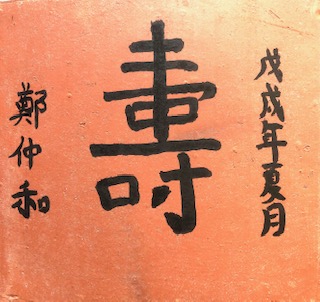 戊戌年夏月
壽
鄭仲和